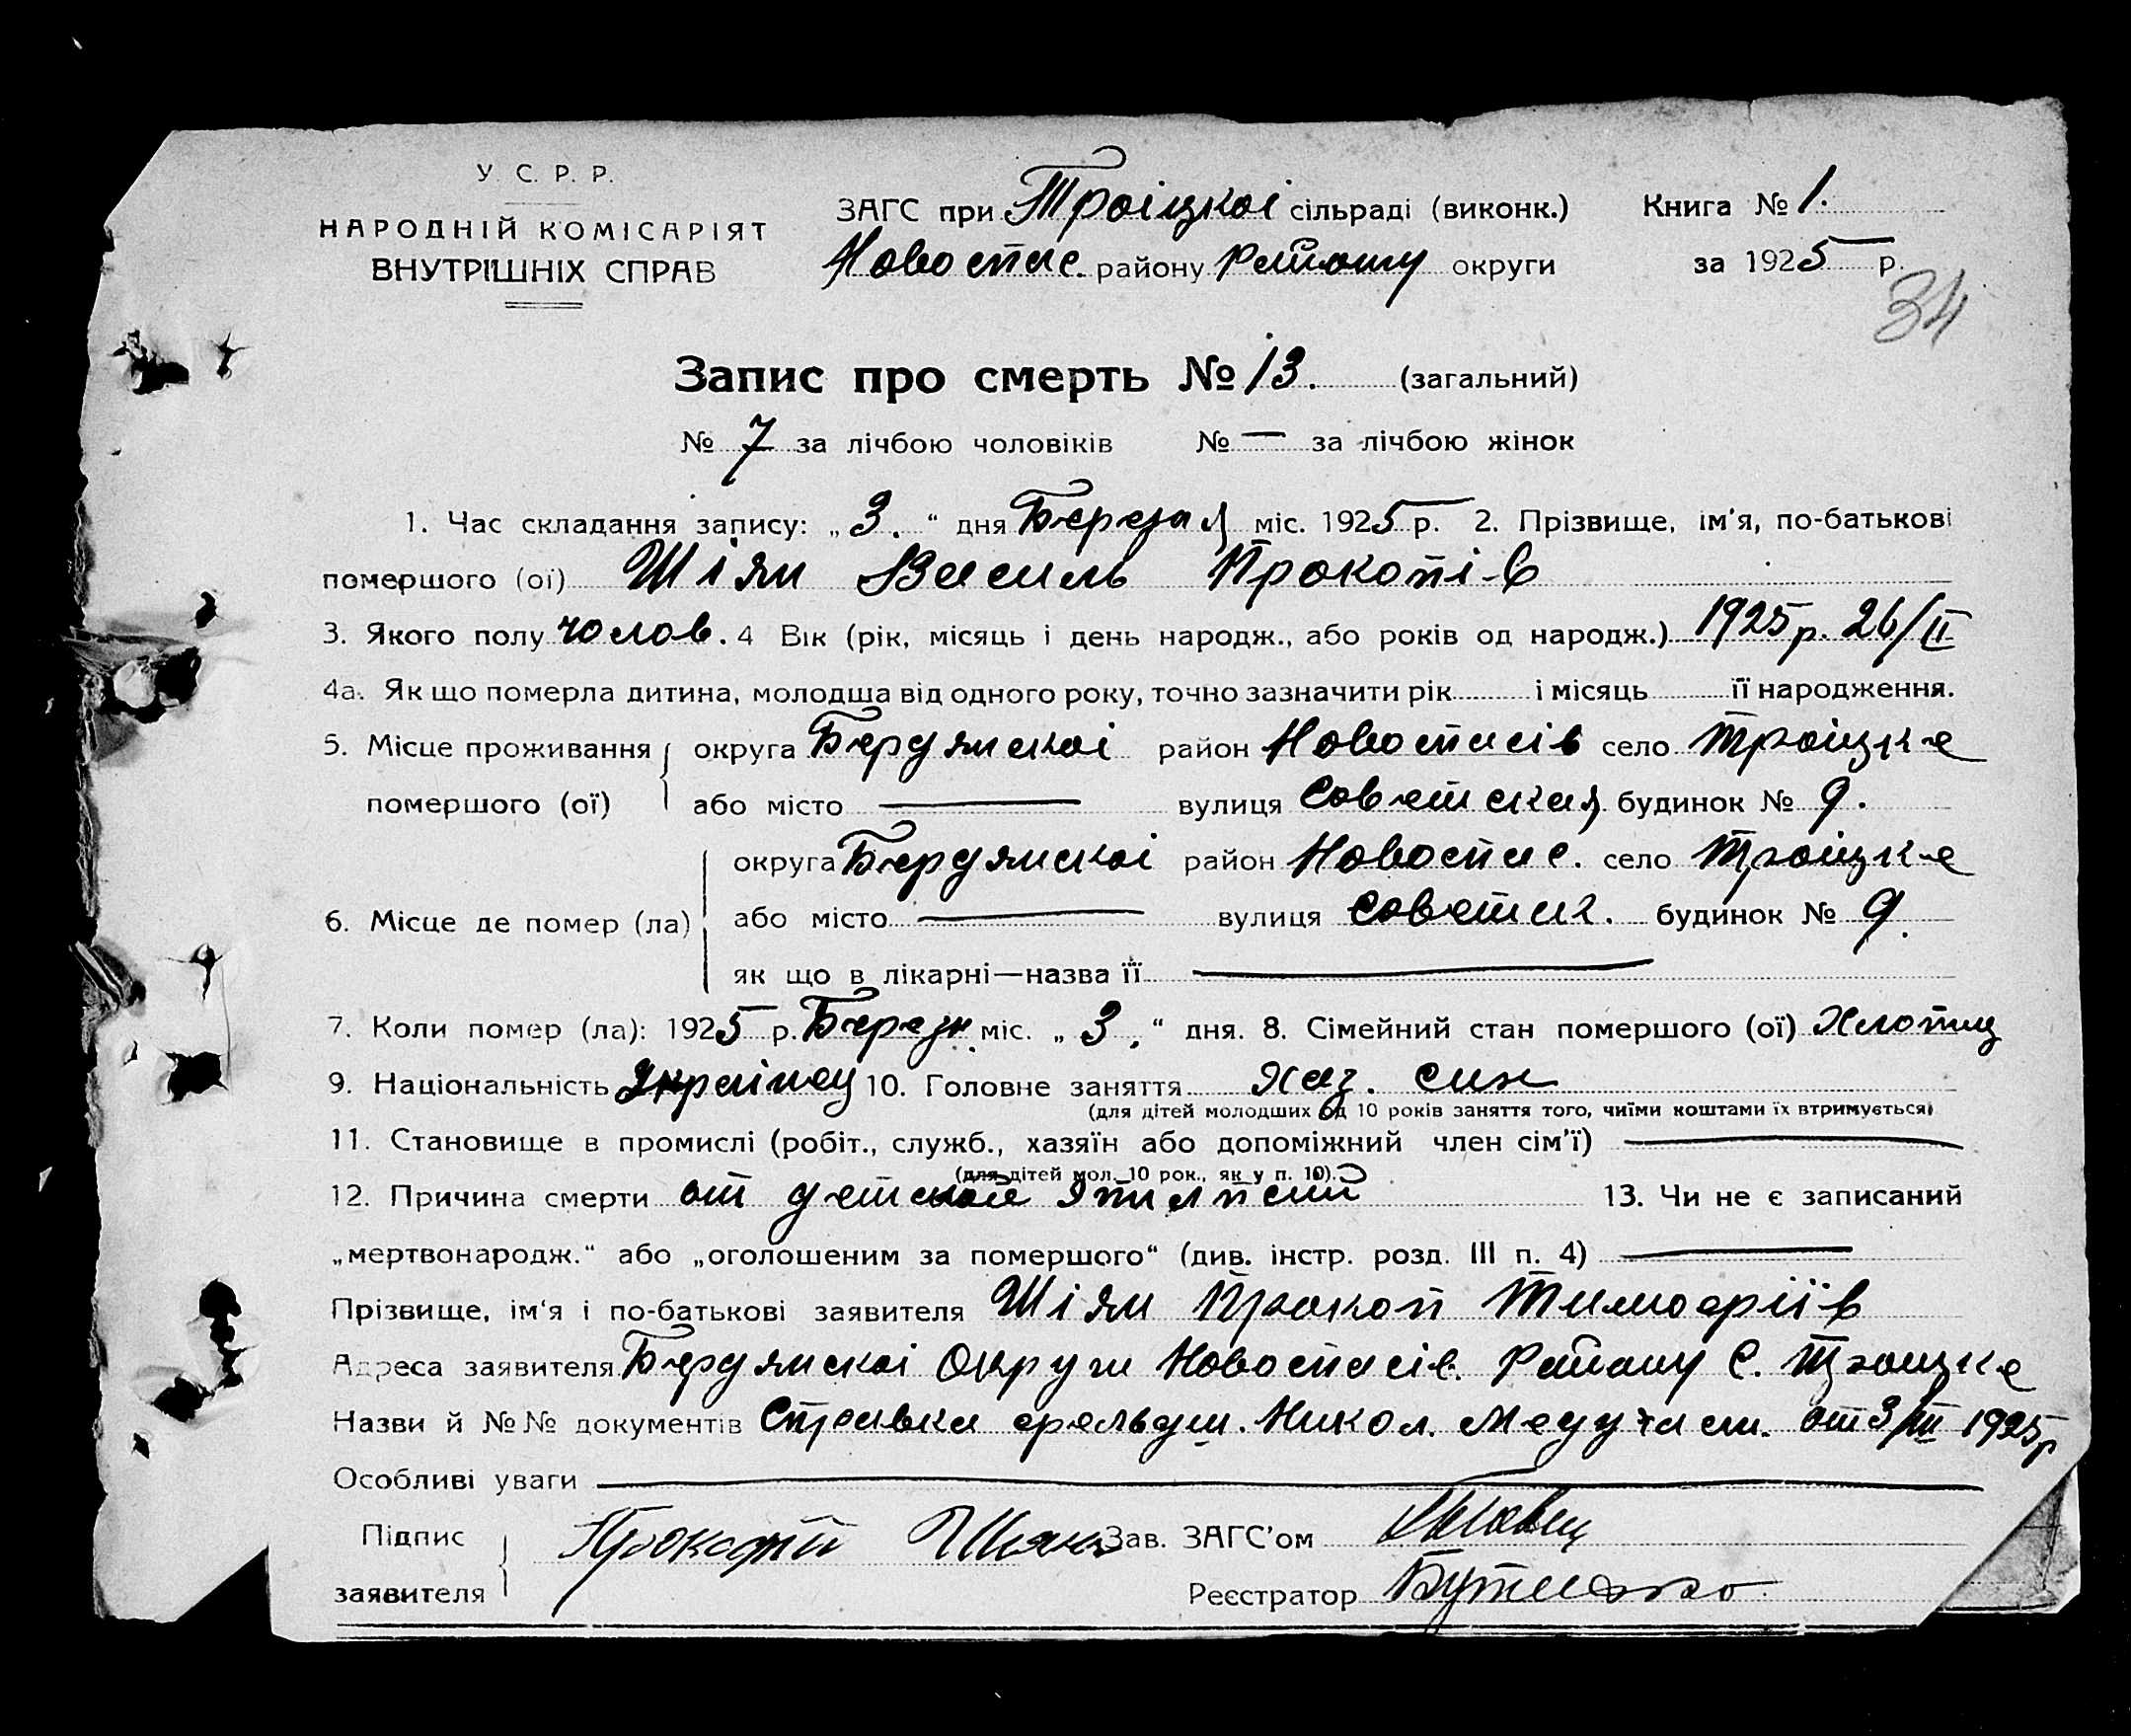 У. С. Р. Р.
НАРОДНІЙ КОМІСАРІЯТ
ВНУТРІШНІХ СПРАВ
ЗАГС при Троіцкоі сільраді (виконк.) Книга № 1.
Новоспас. району Районну округи за 1925 р.
34
Запис про смерть № 13. (загальний)
№ 7 за лічбою чоловіків № — за лічбою жінок
1. Час складання запису: „3.“ дня Березня міс. 1925 р. 2. Прізвище, ім'я, по-батькові
помершого (ої) Шіян Василь Прокопів
3. Якого полу чолов. 4 Вік (рік, місяць і день народж., або років од народж.) 1925 р. 26/II
4а. Як що померла дитина, молодша від одного року, точно зазначити рік і місяць її народження.
5. Місце проживання помершого (ої) округа Бердянскоі район Новоспасів село Троіцке
або місто — вулиця Советская будинок № 9.
6. Місце де помер (ла) округа Бердянскоі район Новоспас. село Троіцке
або місто — вулиця Советск. будинок № 9.
як що в лікарні—назва її —
7. Коли помер (ла): 1925 р. Березн. міс. „3.“ дня. 8. Сімейний стан помершого (ої) Хлопец
9. Національність Украінец 10. Головне заняття Хаз. син
(для дітей молодших од 10 років заняття того, чиїми коштами їх втримується)
11. Становище в промислі (робіт., служб., хазяїн або допоміжний член сім'ї) —
(для дітей мол. 10 рок., як у п. 10).
12. Причина смерти от детской эпилепсии 13. Чи не є записаний
„мертвонародж.“ або „оголошеним за помершого“ (див. інстр. розд. III п. 4) —
Прізвище, ім'я і по-батькові заявителя Шіян Прокоп Тимофіїв
Адреса заявителя Бердянскоі Округи Новоспасів. Району С. Троицке
Назви й №№ документів Справка фельдш. Никол. от 3/III 1925 р
Особливі уваги —
Підпис заявителя Прокофій Шиян Зав. ЗАГС'ом
Реєстратор Бутенко